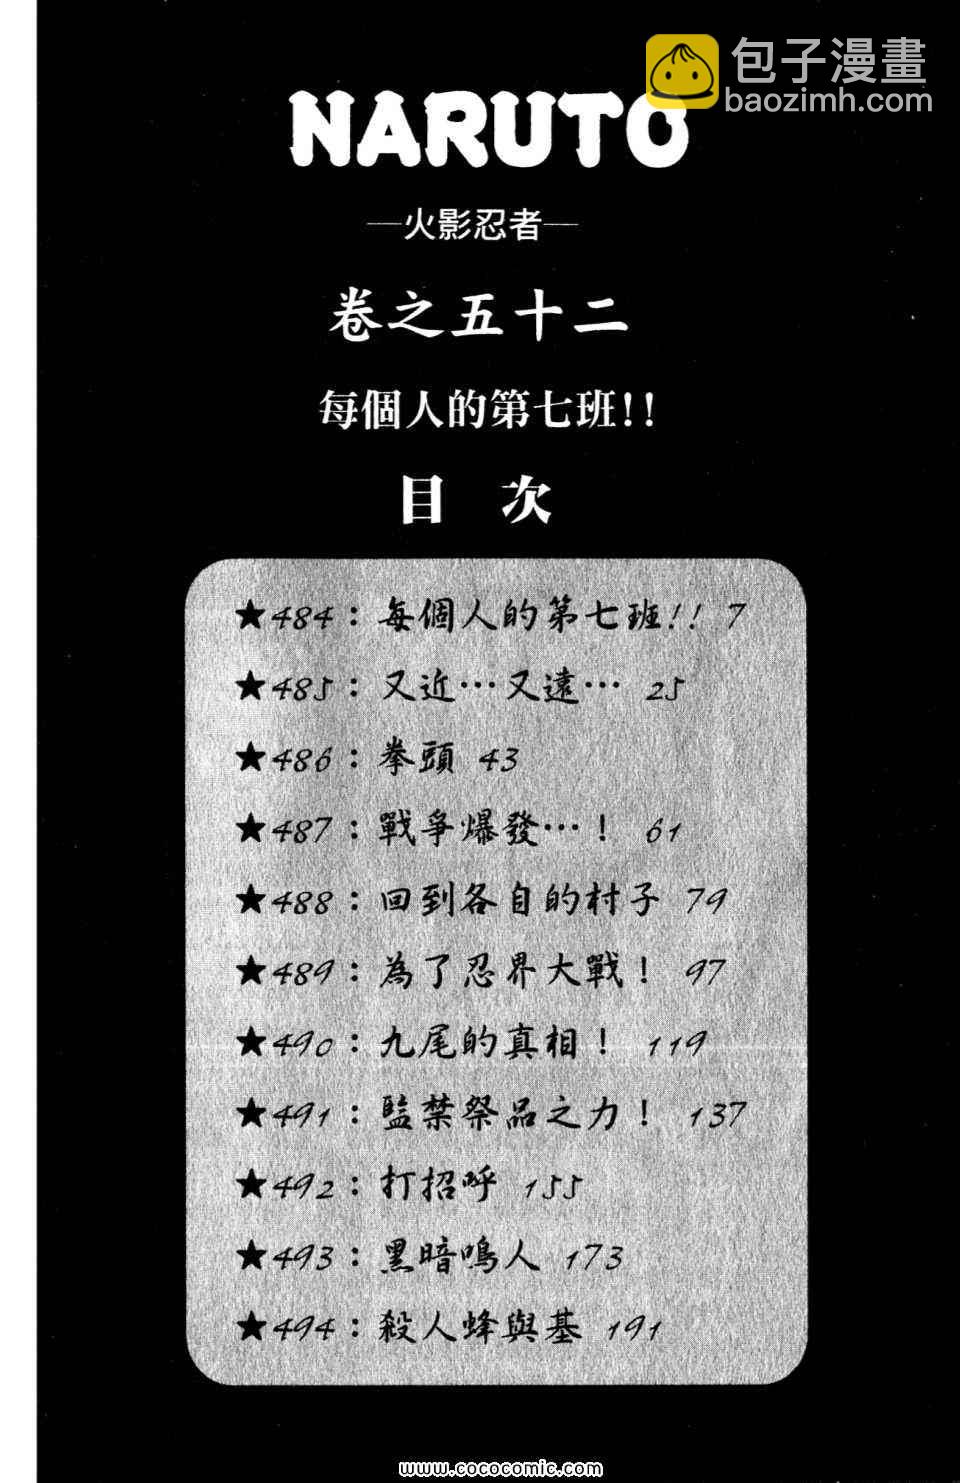 包子漫畫
baozimh.com
NARUTO
—火影忍者—
卷之五十二
每個人的第七班!!
目 次
★484：每個人的第七班!! 7
★485：又近…又遠… 25
★486：拳頭 43
★487：戰爭爆發…！ 61
★488：回到各自的村子 79
★489：為了忍界大戰！ 97
★490：九尾的真相！ 119
★491：監禁祭品之力！ 137
★492：打招呼 155
★493：黑暗鳴人 173
★494：殺人蜂與基 191
www.cococomic.com